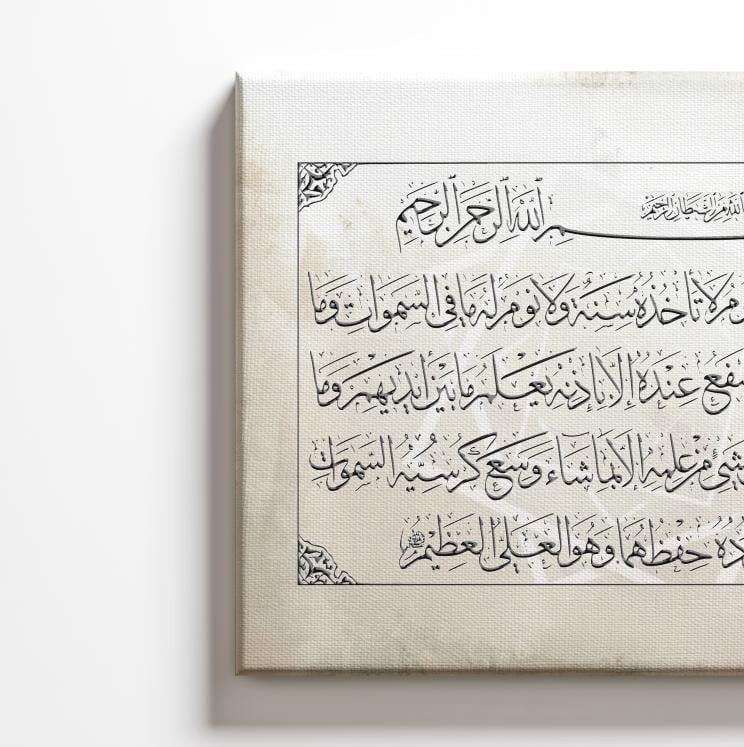 الله من الشيطان الرجيم
الله الرحمن الرحيم
لا تأخذه سنة ولا نوم له ما في السموات وما
عنده إلا بإذنه يعلم ما بين أيديهم وما
بشيء من علمه إلا بما شاء وسع كرسيه السموات
حفظهما وهو العلي العظيم